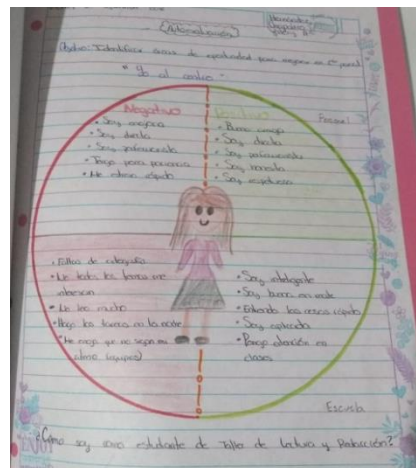 Autoevaluación
Objetivo: Identificar áreas de oportunidad para mejorar en 2º parcial
"Yo al centro"
Negativo
• Soy enojona
• Soy directa
• Soy perfeccionista
• Tengo poca paciencia
• Me estreso rápido
Positivo
• Buena amiga
• Soy directa
• Soy perfeccionista
• Soy honesta
• Soy respetuosa
Personal
• Faltas de ortografía
• No todos los temas me
• No leo mucho
• Hago las tareas en la noche
• Me enojo que no sigan mi
ritmo (equipos)
• Soy inteligente
• Soy buena en mate
• Entiendo las cosas rápido
• Soy aplicada
• Pongo atención en
clases
Escuela
¿Cómo soy como estudiante de Taller de Lectura y Redacción?